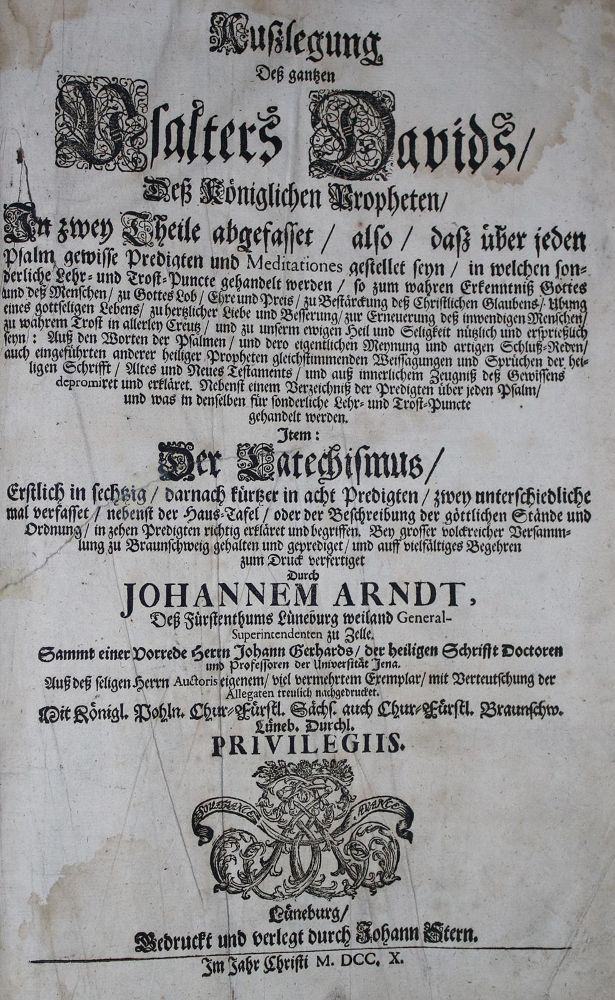 Außlegung
Deß gantzen
Psalters Davids/
Deß Königlichen Propheten/
In zwey Theile abgefasset / also / daß über jeden
Psalm gewisse Predigten und Meditationes gestellet seyn / in welchen son-
derliche Lehr- und Trost-Puncte gehandelt werden / so zum wahren Erkenntniß Gottes
und deß Menschen / zu Gottes Lob / Ehre und Preis / zu Bestärckung deß Christlichen Glaubens / Ubung
eines gottseligen Lebens / zu hertzlicher Liebe und Besserung / zur Erneuerung deß inwendigen Menschen /
zu wahrem Trost in allerley Creutz / und zu unserm ewigen Heil und Seligkeit nützlich und ersprießlich
seyn / : Auß den Worten der Psalmen / und dero eigentlichen Meynung und artigen Schluß-Reden /
auch eingeführten anderer heiliger Propheten gleichstimmenden Weissagungen und Sprüchen der hei-
ligen Schrifft / Altes und Neues Testaments / und auß innerlichem Zeugniß deß Gewissens
depromiret und erkläret. Nebenst einem Verzeichniß der Predigten über jeden Psalm /
und was in denselben für sonderliche Lehr- und Trost-Puncte
gehandelt werden.
Item:
Der Catechismus /
Erstlich in sechtzig / darnach kürtzer in acht Predigten / zwey unterschiedliche
mal verfasset / nebenst der Haus-Tafel / oder der Beschreibung der göttlichen Stände und
Ordnung / in zehen Predigten richtig erkläret und begriffen. Bey grosser volckreicher Versamm-
lung zu Braunschweig gehalten und geprediget / und auff vielfältiges Begehren
zum Druck verfertiget
Durch
JOHANNEM ARNDT,
Deß Fürstenthums Lüneburg weiland General-
Superintendenten zu Zelle.
Sammt einer Vorrede Herrn Johann Gerhards / der heiligen Schrifft Doctoren
und Professoren der Universität Jena.
Auß deß seligen Herrn Auctoris eigenem / viel vermehrtem Exemplar / mit Verteutschung der
Allegaten treulich nachgedrucket.
Mit Königl. Pohln. Chur-Fürstl. Sächs. auch Chur-Fürstl. Braunschw.
Lüneb. Durchl.
PRIVILEGIIS.
Lüneburg /
Gedruckt und verlegt durch Johann Stern.
Im Jahr Christi M. DCC. X.